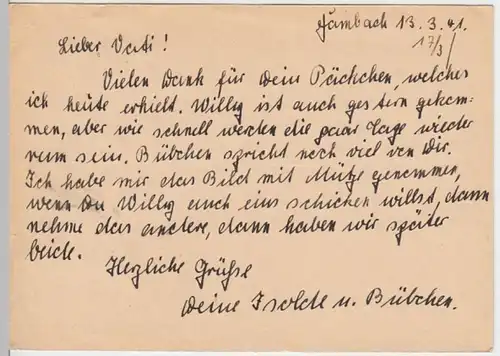 Jambach 13.3.41.
17/3
Lieber Vati!
Vielen Dank für Dein Päckchen, welches
ich heute erhielt. Willy ist auch gestern gekom-
men, aber wie schnell werden die paar Tage wieder
rum sein. Bübchen spricht noch viel von Dir.
Ich habe mir das Bild mit Mütze genommen,
wenn Du Willy auch eins schicken willst, dann
nehme das andere, dann haben wir später
beide.
Herzliche Grüße
Deine Isolde u. Bübchen.